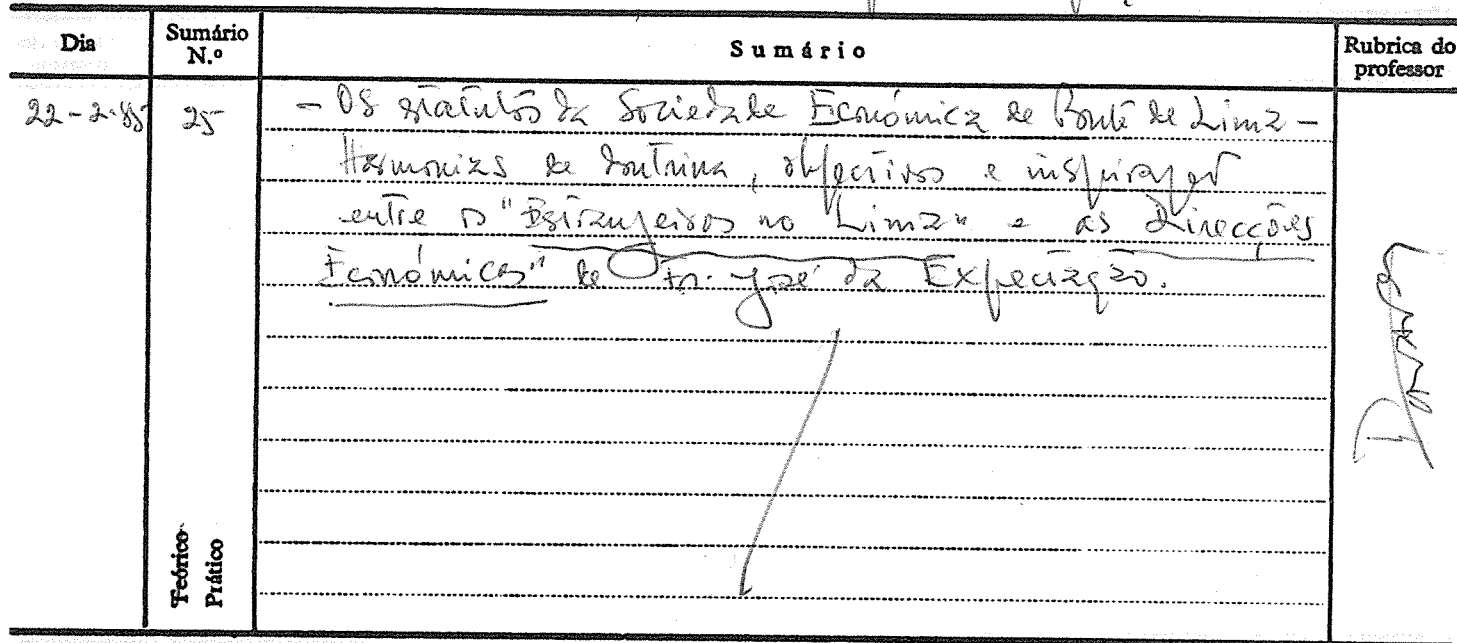 Dia
Sumário N.º
Sumário
Rubrica do professor
22-2-85
25
- Os estatutos da Sociedade Económica de Ponte de Lima -
Harmonias de doutrina, objectivos e inspiração
entre o "Estrangeiros no Lima" e as Direcções
Económicas" de Fr. José da Expectação.
Teórico-
Prático